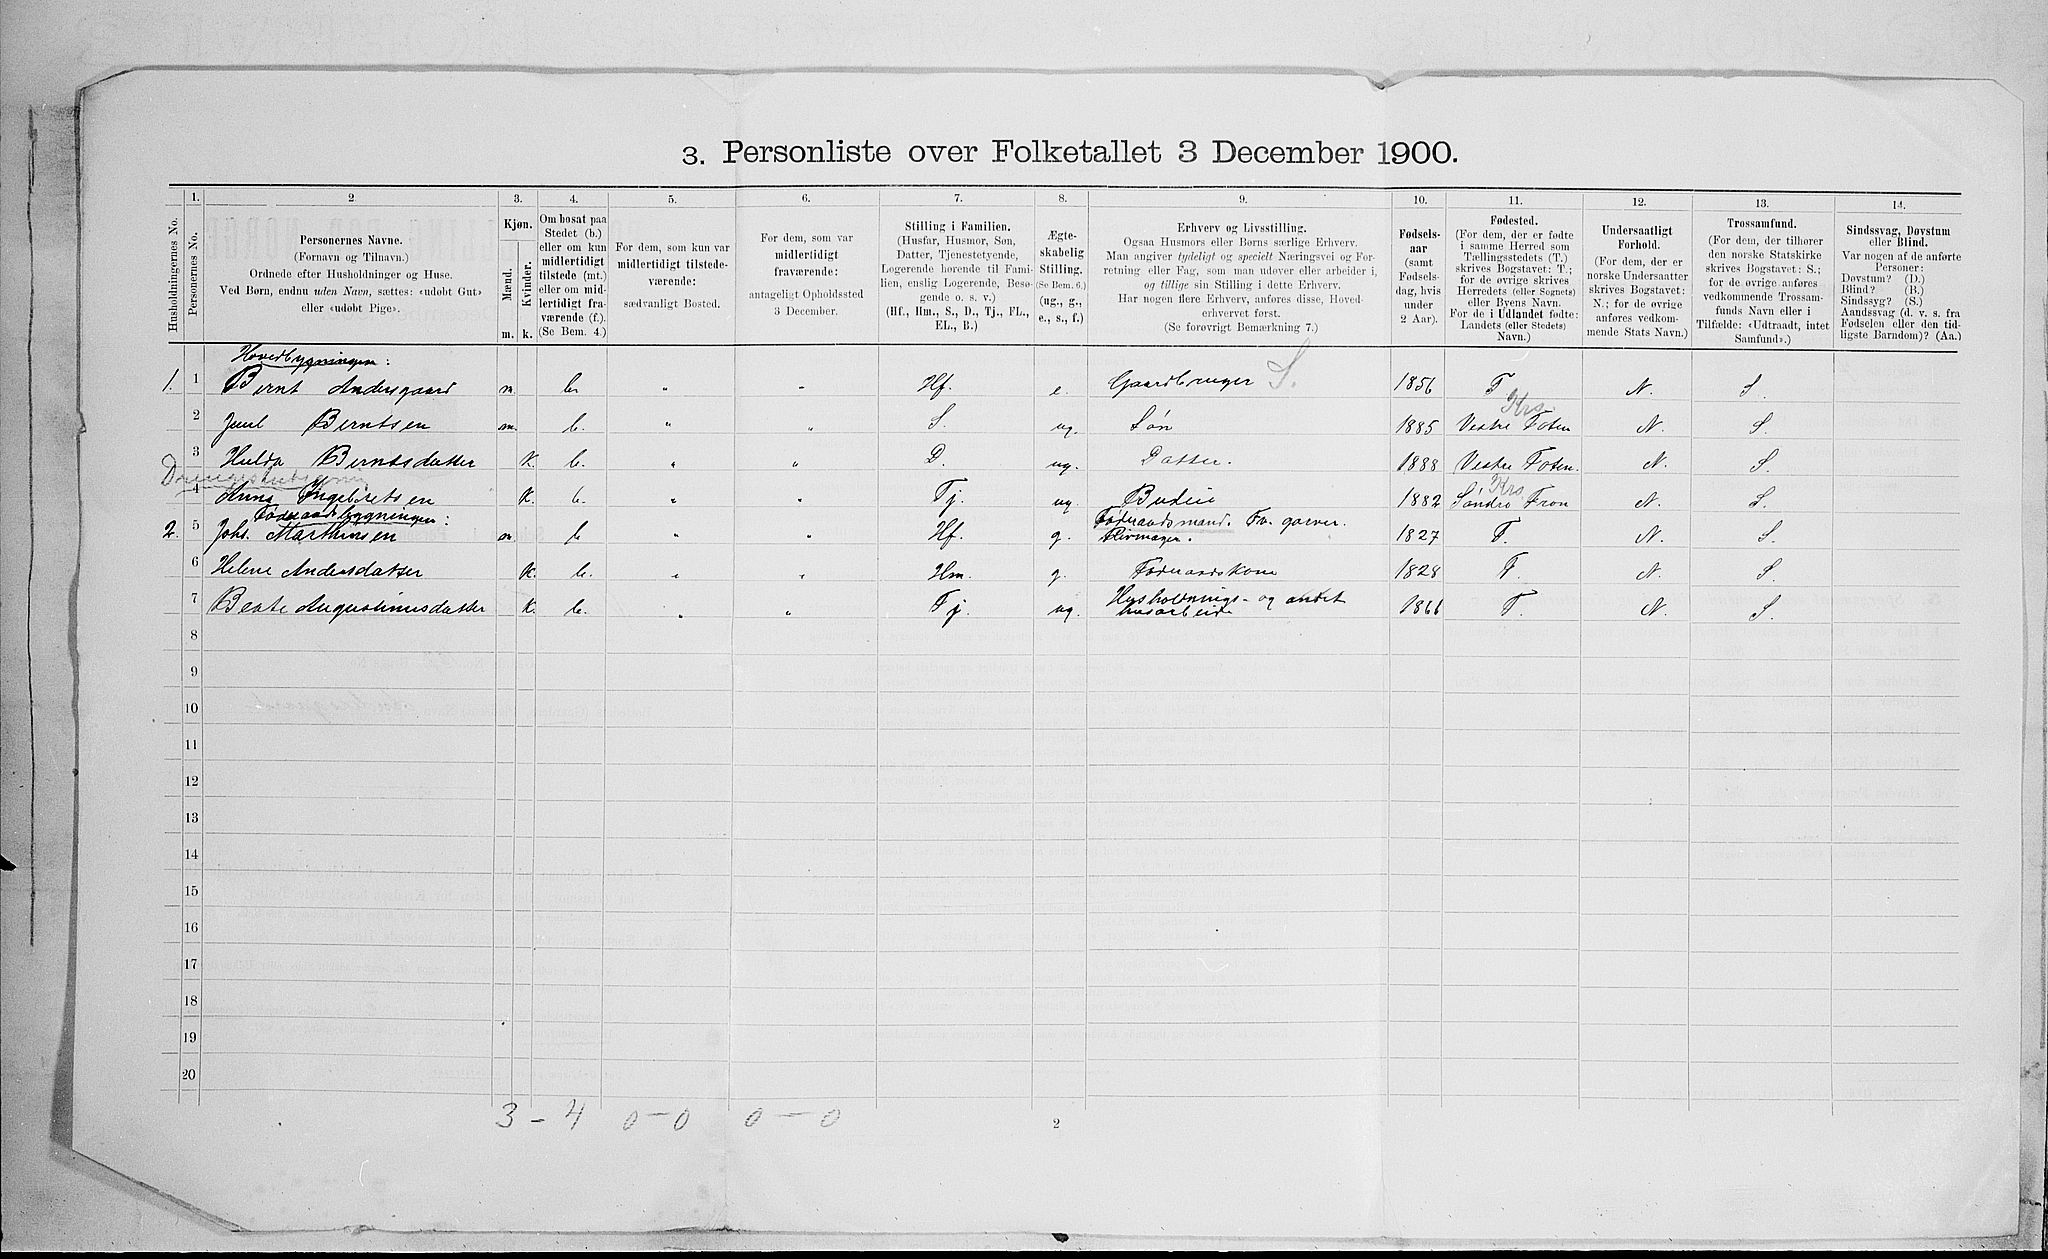 3. Personliste over Folketallet 3 December 1900.
Husholdningernes No.
1.
Personernes No.
2.
Personernes Navne.
(Fornavn og Tilnavn.)
Ordnede efter Husholdninger og Huse.
Ved Børn, endnu uden Navn, sættes: «udøbt Gut»
eller «udøbt Pige».
3.
Kjøn.
Mænd.
Kvinder.
m. k.
4.
Om bosat paa
Stedet (b.)
eller om kun
midlertidigt
tilstede (mt.)
eller om mid-
lertidigt fra-
værende (f.).
(Se Bem. 4.)
5.
For dem, som kun var
midlertidigt tilstede-
værende:
sædvanligt Bosted.
6.
For dem, som var
midlertidigt
fraværende:
antageligt Opholdssted
3 December.
7.
Stilling i Familien.
(Husfar, Husmor, Søn,
Datter, Tjenestetyende,
Logerende hørende til Fami-
lien, enslig Logerende, Besø-
gende o. s. v.)
(Hf., Hm., S., D., Tj., FL.,
EL., B.)
8.
Ægte-
skabelig
Stilling.
(Se Bem. 6.)
(ug., g.,
e., s., f.)
9.
Erhverv og Livsstilling.
Ogsaa Husmors eller Børns særlige Erhverv.
Man angiver tydeligt og specielt Næringsvei og For-
retning eller Fag, som man udover eller arbeider i,
og tillige sin Stilling i dette Erhverv.
Har nogen flere Erhverv, anføres disse, Hoved-
erhvervet først.
(Se forøvrigt Bemærkning 7.)
10.
Fødsels-
aar
(samt
Fødsels-
dag, hvis
under
2 Aar).
11.
Fødested.
(For dem, der er fødte
i samme Herred som
Tællingsstedets (T.)
skrives Bogstavet: T.;
for de øvrige skrives
Herredets (eller Sognets)
eller Byens Navn.
For de i Udlandet fødte:
Landets (eller Stedets)
Navn.)
12.
Undersaatligt
Forhold.
(For dem, der er
norske Undersaatter
skrives Bogstavet:
N.; for de øvrige
anføres vedkom-
mende Stats Navn.)
13.
Trossamfund.
(For dem, der tilhører
den norske Statskirke
skrives Bogstavet: S.;
for de øvrige anføres
vedkommende Trossam-
funds Navn eller i
Tilfælde: «Udtraadt, intet
Samfund».)
14.
Sindssvag, Døvstum
eller Blind.
Var nogen af de anførte
Personer:
Døvstum? (D.)
Blind? (B.)
Sindssyg? (S.)
Aandssvag (d. v. s. fra
Fødselen eller den tid-
ligste Barndom)? (Aa.)
Hovedbygningen:
1. 1 Bernt Andersgaard m. b. " " Hf. e. Gaardbruger S. 1856 T N. S.
Krs.
2 Juul Berntsen m. b. " " S. ug. Søn 1885 Vestre Toten N. S.
3 Hulda Berntsdatter K. b. " " D. ug. Datter. 1888 Vestre Toten. N. S.
Krs
4 Anna Ingebretsen K. b. " " Tj. ug Budeie 1882 Søndre Fron N. S.
Føderaadsbygningen:
2. 5 Johs. Marthinsen m. b " " Hf. g. Føderaadsmand. Fv. garver. 1827 T. N. S.
6 Helene Andersdatter K. b. " " Hm. g. Føderaadskone 1828 T. N. S.
7 Beate Augustinusdatter K. b. " " Tj. ug. Husholdnings- og andet 1866 T. N. S.
husarbeide
8
9
10
11
12
13
14
15
16
17
18
19
20
3 - 4 0 - 0 0 - 0
2